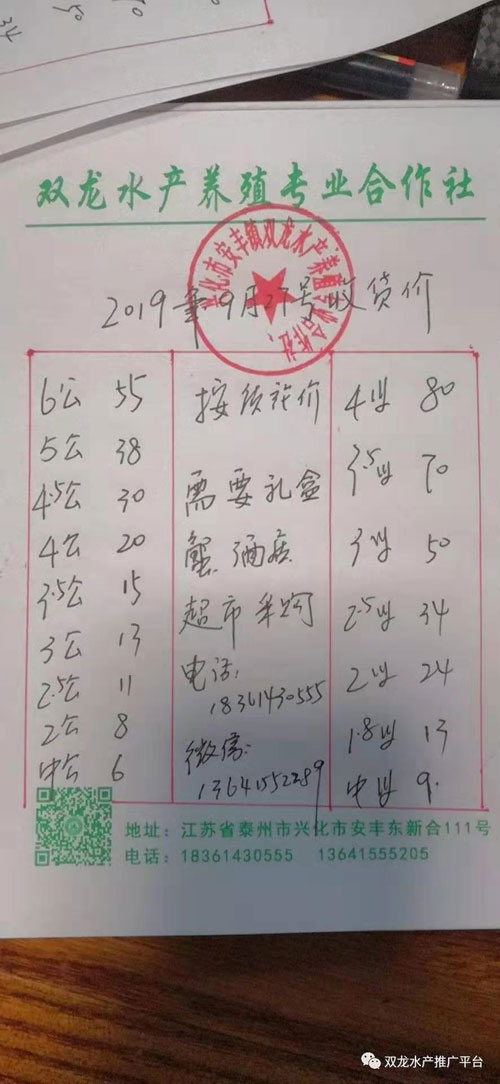 34
50
50
双龙水产养殖专业合作社
兴化市安丰镇双龙水产养殖专业合作社
2019年9月27号收货价
6公 55
5公 38
4.5公 30
4公 20
3.5公 15
3公 13
2.5公 11
2公 8
中公 6
按质论价
需要礼盒
蟹 酒店
超市采购
电话:
18361430555
微信:
13641552289
4母 80
3.5母 70
3母 50
2.5母 34
2母 24
1.8母 13
中母 9.
地址:江苏省泰州市兴化市安丰东新合111号
电话:18361430555 13641555205
双龙水产推广平台